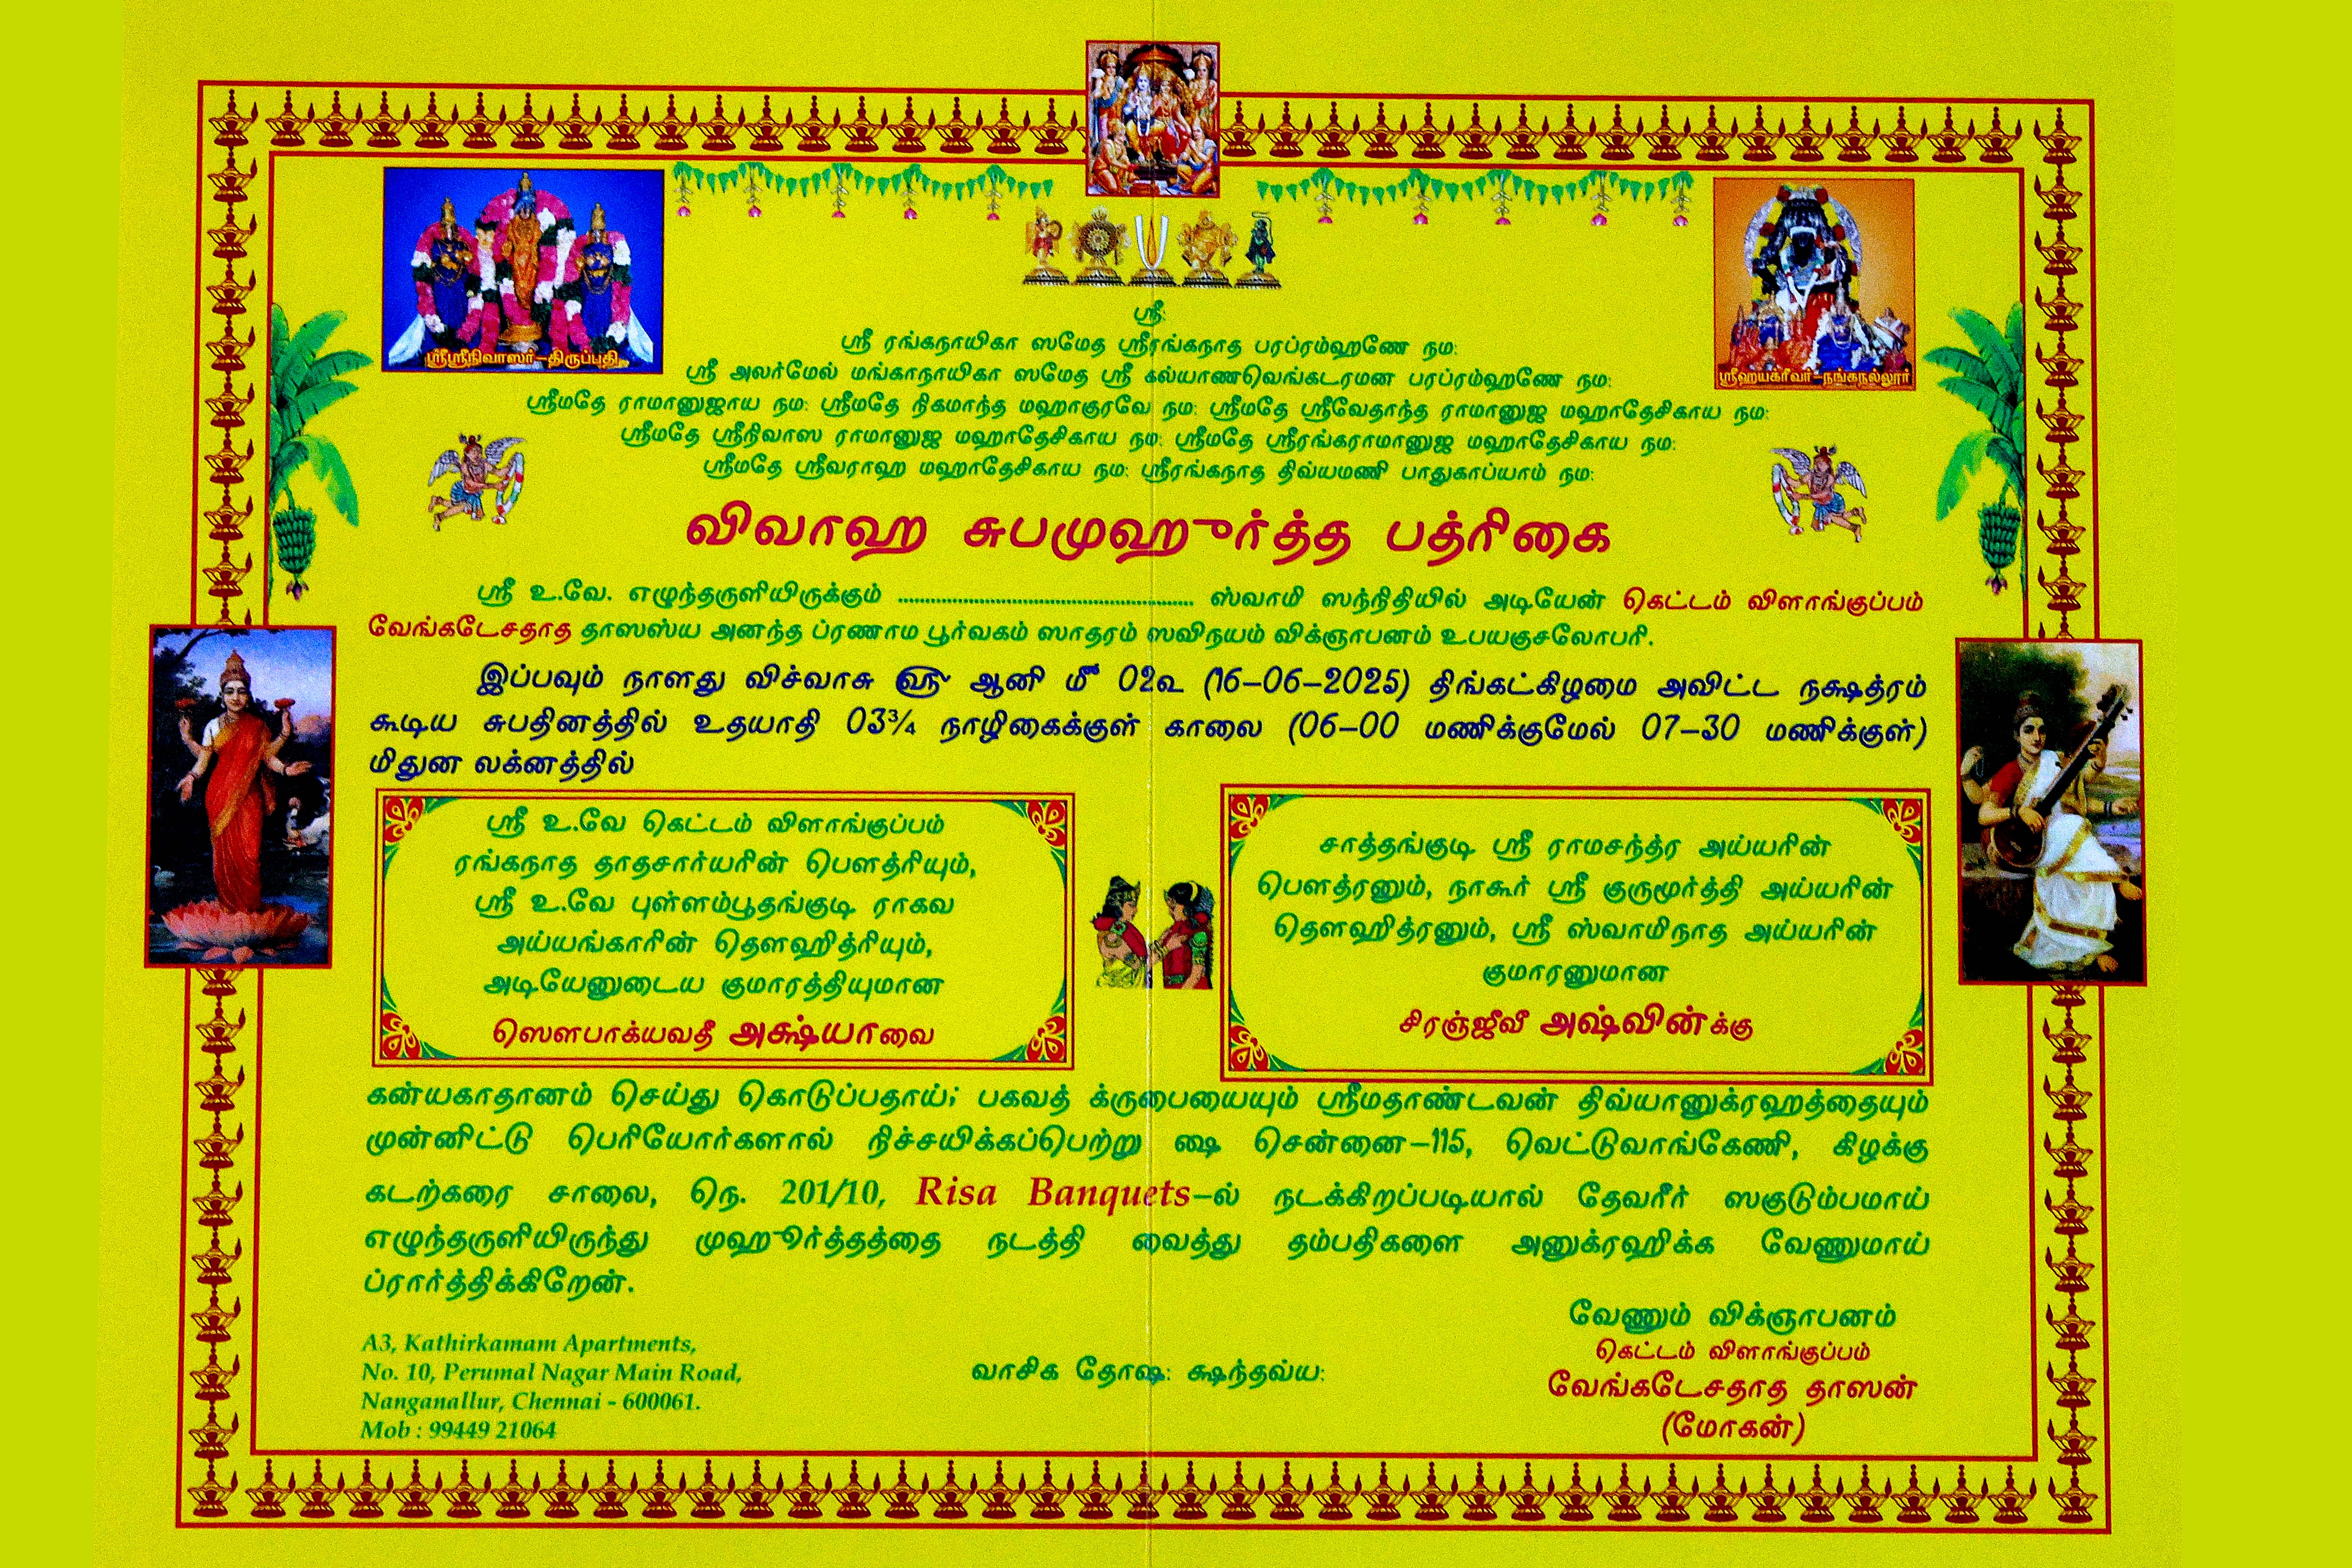 ஸ்ரீ:
ஸ்ரீ ரங்கநாயிகா ஸமேத ஸ்ரீரங்கநாத பரப்ரம்ஹணே நம:
ஸ்ரீ அலர்மேல் மங்காநாயிகா ஸமேத ஸ்ரீ கல்யாணவெங்கடரமன பரப்ரம்ஹணே நம:
ஸ்ரீஸ்ரீநிவாஸர்–திருப்பதி
ஸ்ரீஹயக்ரீவர்–நங்கநல்லூர்
ஸ்ரீமதே ராமானுஜாய நம: ஸ்ரீமதே நிகமாந்த மஹாகுரவே நம: ஸ்ரீமதே ஸ்ரீவேதாந்த ராமானுஜ மஹாதேசிகாய நம:
ஸ்ரீமதே ஸ்ரீநிவாஸ ராமானுஜ மஹாதேசிகாய நம: ஸ்ரீமதே ஸ்ரீரங்கராமானுஜ மஹாதேசிகாய நம:
ஸ்ரீமதே ஸ்ரீவராஹ மஹாதேசிகாய நம: ஸ்ரீரங்கநாத திவ்யமணி பாதுகாப்யாம் நம:
விவாஹ சுபமுஹூர்த்த பத்ரிகை
ஸ்ரீ உ.வே. எழுந்தருளியிருக்கும் ........................ ஸ்வாமி ஸந்நிதியில் அடியேன் கெட்டம் விளாங்குப்பம்
வேங்கடேசதாத தாஸஸ்ய அனந்த ப்ரணாம பூர்வகம் ஸாதரம் ஸவிநயம் விக்ஞாபனம் உபயகுசலோபரி.
இப்பவும் நாளது விச்வாசு ௵ ஆனி ௴ 02௨ (16–06–2025) திங்கட்கிழமை அவிட்ட நக்ஷத்ரம்
கூடிய சுபதினத்தில் உதயாதி 03¾ நாழிகைக்குள் காலை (06–00 மணிக்குமேல் 07–30 மணிக்குள்)
மிதுன லக்னத்தில்
ஸ்ரீ உ.வே கெட்டம் விளாங்குப்பம்
ரங்கநாத தாதசார்யரின் பௌத்ரியும்,
ஸ்ரீ உ.வே புள்ளம்பூதங்குடி ராகவ
அய்யங்காரின் தௌஹித்ரியும்,
அடியேனுடைய குமாரத்தியுமான
ஸௌபாக்யவதீ அக்ஷ்யாவை
சாத்தங்குடி ஸ்ரீ ராமசந்த்ர அய்யரின்
பௌத்ரனும், நாகூர் ஸ்ரீ குருமூர்த்தி அய்யரின்
தௌஹித்ரனும், ஸ்ரீ ஸ்வாமிநாத அய்யரின்
குமாரனுமான
சிரஞ்ஜீவீ அஷ்வின்க்கு
கன்யகாதானம் செய்து கொடுப்பதாய்; பகவத் க்ருபையையும் ஸ்ரீமதாண்டவன் திவ்யானுக்ரஹத்தையும்
முன்னிட்டு பெரியோர்களால் நிச்சயிக்கப்பெற்று ஷை சென்னை–115, வெட்டுவாங்கேணி, கிழக்கு
கடற்கரை சாலை, நெ. 201/10, Risa Banquets–ல் நடக்கிறப்படியால் தேவரீர் ஸகுடும்பமாய்
எழுந்தருளியிருந்து முஹூர்த்தத்தை நடத்தி வைத்து தம்பதிகளை அனுக்ரஹிக்க வேணுமாய்
ப்ரார்த்திக்கிறேன்.
A3, Kathirkamam Apartments,
No. 10, Perumal Nagar Main Road,
Nanganallur, Chennai - 600061.
Mob : 99449 21064
வாசிக தோஷ: க்ஷந்தவ்ய:
வேணும் விக்ஞாபனம்
கெட்டம் விளாங்குப்பம்
வேங்கடேசதாத தாஸன்
(மோகன்)